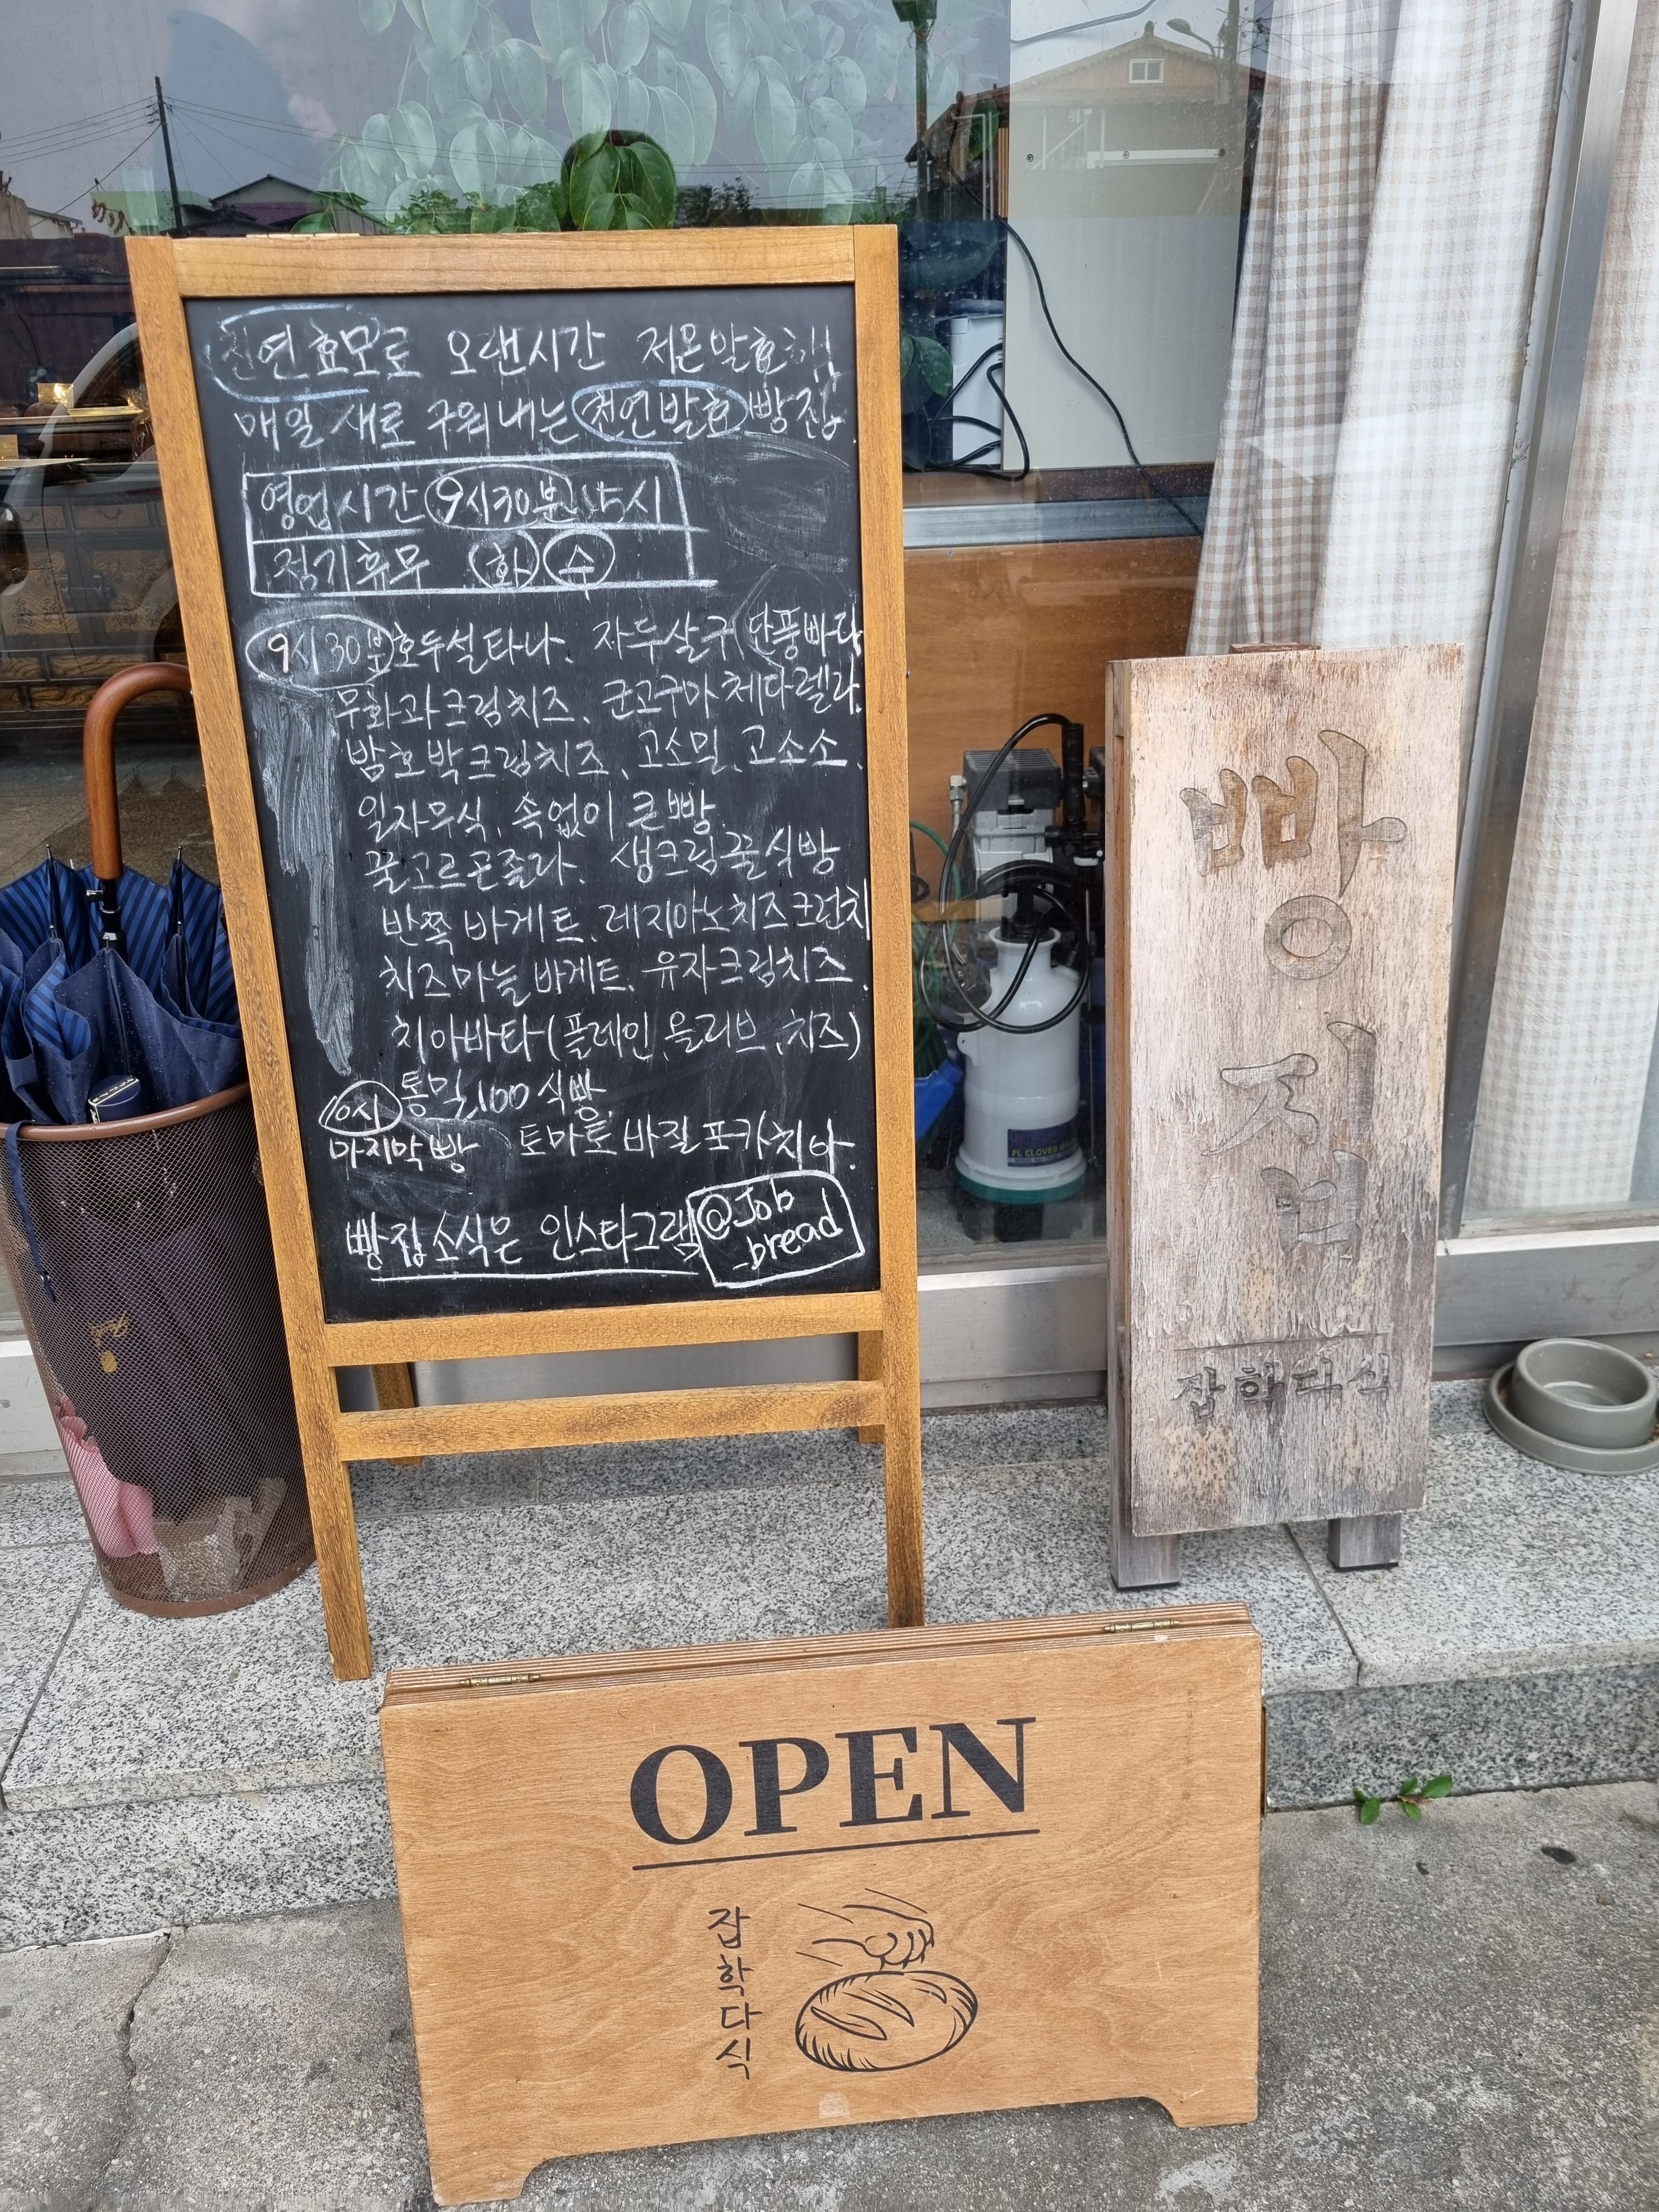 천연효모로 오랜시간 저온발효해
매일 새로 구워내는 천연발효 빵집
영업시간 9시30분 5시
정기휴무 화 수
9시30분 호두설타나. 자두살구 단풍빠다
무화과크림치즈. 군고구마 체다렐라.
밤호박크림치즈. 고소밀. 고소소.
일자무식. 속없이 큰빵.
꿀고르곤졸라. 생크림꿀식빵
반쪽 바게트. 레지아노치즈크런치
치즈마늘바게트. 유자크림치즈.
치아바타(플레인, 올리브, 치즈)
10시 통밀100식빵.
마지막빵 토마토 바질포카치아.
빵집소식은 인스타그램 @Job
_bread
빵
집
잡학다식
FL CLOVER
OPEN
잡학다식